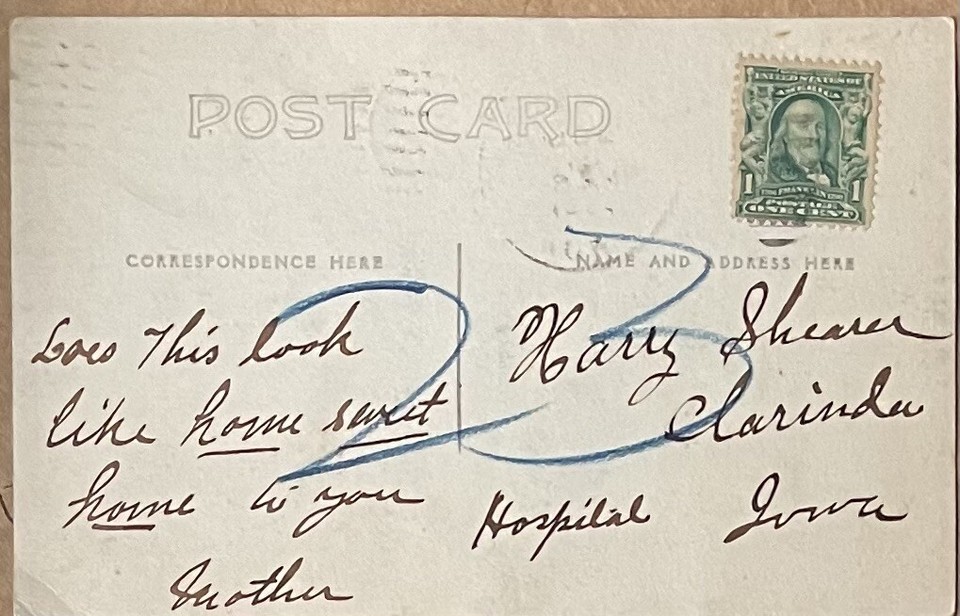 POST CARD
UNITED STATES OF
AMERICA
1 FRANKLIN 1
POSTAGE
ONE CENT
CORRESPONDENCE HERE
NAME AND ADDRESS HERE
23
Does This look
like home sweet
home to you
Mother
Harry Shearer
Clarinda
Hospital Iowa